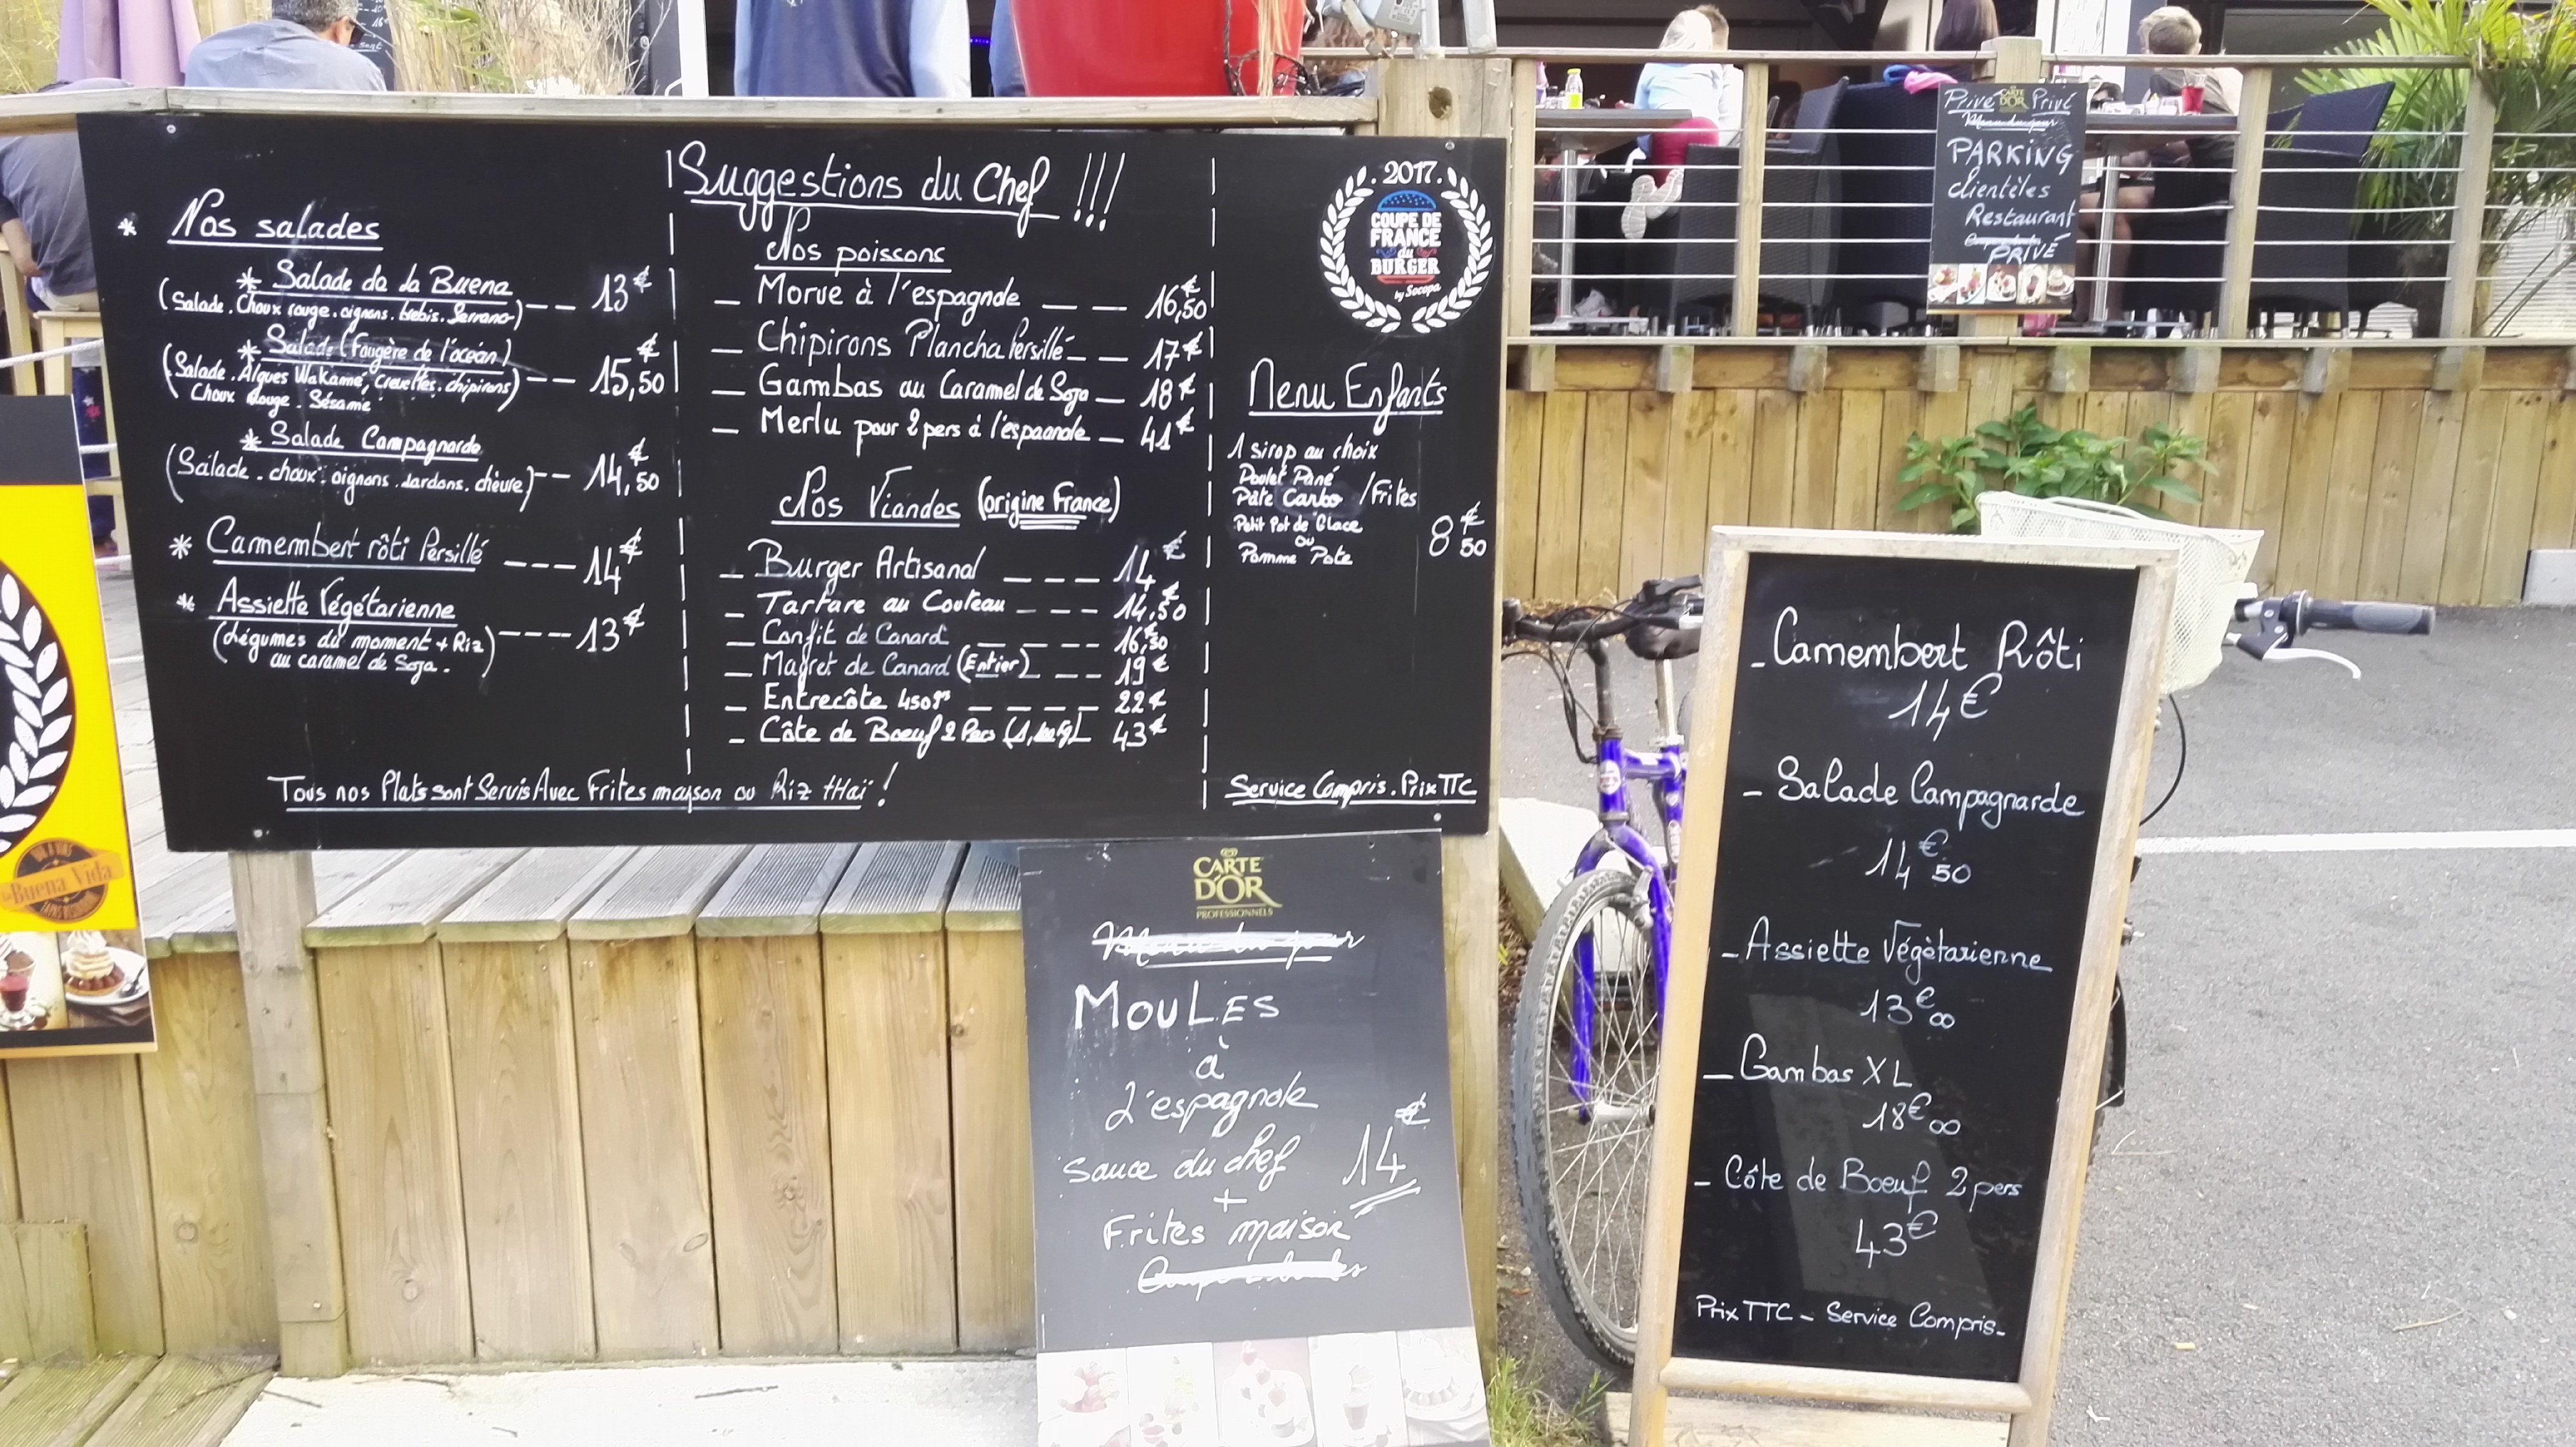 Suggestions du Chef !!!
* Nos salades
* Salade da la Buena
(Salade. Choux rouge. oignons. brebis. Serrano) -- 13€
* Salade (Fougère de l'océan)
(Salade. Algues Wakamé, Crevettes. chipirons) -- 15,50€
Choux Rouge. Sésame
* Salade Campagnarde
(Salade. choux. oignons. lardons. chèvre) -- 14,50€
* Camembert rôti Persillé --- 14€
* Assiette Végétarienne
(Légumes du moment + Riz) ---- 13€
au caramel de Soja.
Nos poissons
- Morue à l'espagnole -- 16,50€
- Chipirons Plancha Persillé -- 17€
- Gambas au Caramel de Soja - 18€
- Merlu pour 2 pers à l'espagnole - 41€
Nos Viandes (origine France)
- Burger Artisanal --- 14€
- Tartare au Couteau --- 14,50€
- Confit de Canard ---- 16,50€
- Magret de Canard (Entier) -- 19€
- Entrecôte 450grs ---- 22€
- Côte de Boeuf 2 Pers 43€
Tous nos Plats sont Servis Avec Frites maison ou Riz tHaï !
2017
COUPE DE
FRANCE
du
BURGER
by Socopa
Menu Enfants
1 sirop au choix
Poulet Pané
Pâte Carbo /Frites
Petit Pot de Glace
ou
Pomme Pote
8€50
Service Compris. Prix TTC
CARTE
D'OR
PROFESSIONNELS
Menu du jour
MOULES
à
L'espagnole
Sauce du chef 14€
+
Frites maison
- Camembert Rôti
14€
- Salade Campagnarde
14€50
- Assiette Végétarienne
13€00
- Gambas XL
18€00
- Côte de Boeuf 2 pers
43€
Prix TTC - Service Compris-
Privé CARTE D'OR Privé
Menu du jour
PARKING
clientèles
Restaurant
PRIVÉ
la Buena Vida